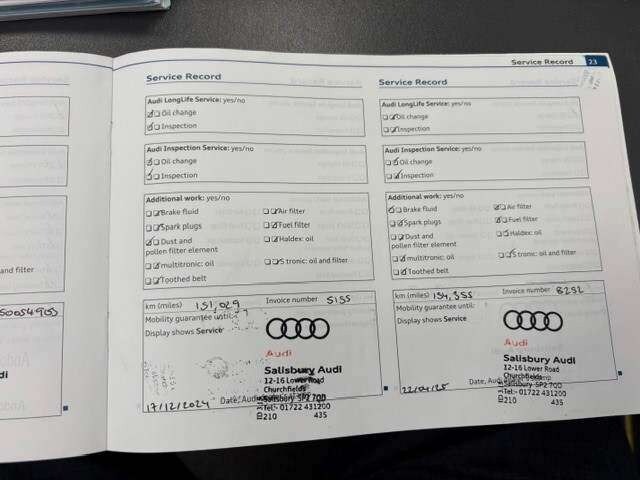 Service Record 23
Service Record
Audi LongLife Service: yes/no
Oil change
Inspection
Audi Inspection Service: yes/no
Oil change
Inspection
Additional work: yes/no
Brake fluid
Air filter
Spark plugs
Fuel filter
Dust and
pollen filter element
Haldex: oil
multitronic: oil
S tronic: oil and filter
Toothed belt
km (miles) 151,029 Invoice number 5155
Mobility guarantee until:
Display shows Service
Audi
Salisbury Audi
12-16 Lower Road
Churchfields
Salisbury SP2 7QD
Tel:- 01722 431200
210 435
17/12/2024 Date, Audi
Service Record
Audi LongLife Service: yes/no
Oil change
Inspection
Audi Inspection Service: yes/no
Oil change
Inspection
Additional work: yes/no
Brake fluid
Air filter
Spark plugs
Fuel filter
Dust and
pollen filter element
Haldex: oil
multitronic: oil
S tronic: oil and filter
Toothed belt
km (miles) 154,355 Invoice number 8252
Mobility guarantee until:
Display shows Service
Audi
Salisbury Audi
12-16 Lower Road
Churchfields
Salisbury SP2 7QD
Tel:- 01722 431200
210 435
22/04/25 Date, Audi
and filter